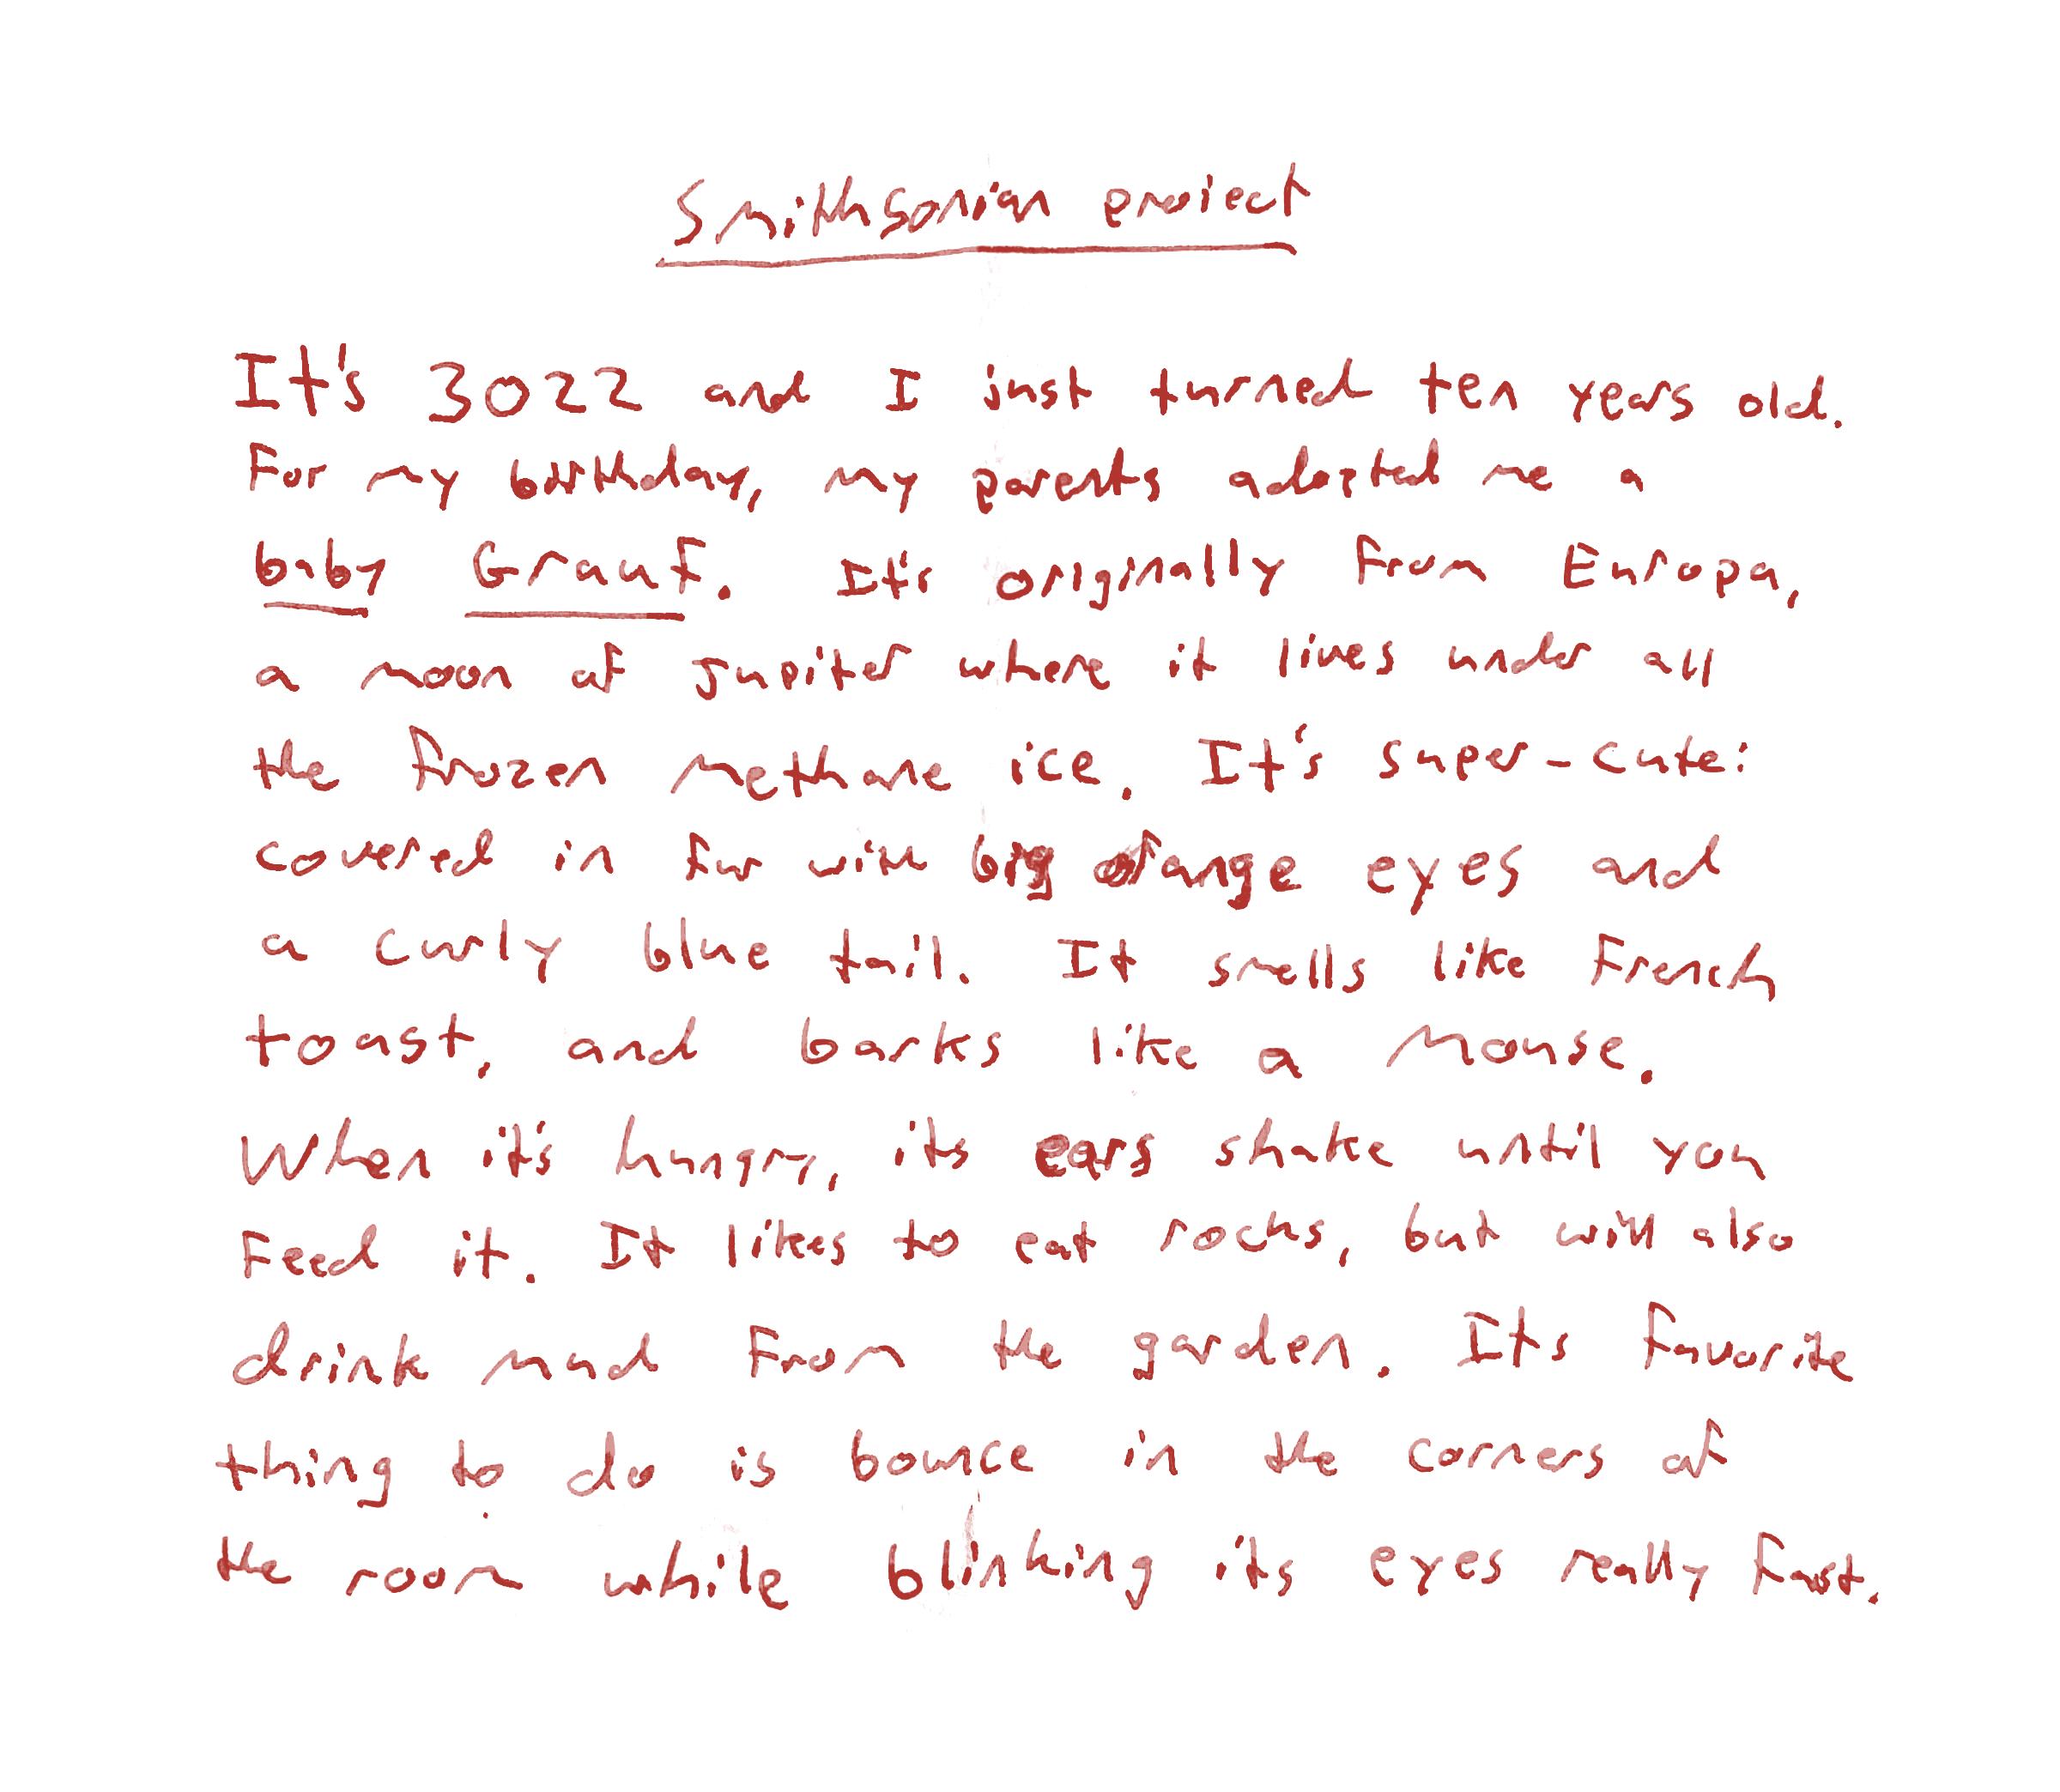 Smithsonian project
It's 3022 and I just turned ten years old.
For my birthday, my parents adopted me a
baby Grauf. It's originally from Europa,
a moon of Jupiter where it lives under all
the frozen methane ice. It's super-cute:
covered in fur with big orange eyes and
a curly blue tail. It smells like French
toast, and barks like a mouse.
When it's hungry, its ears shake until you
feed it. It likes to eat rocks, but will also
drink mud from the garden. Its favorite
thing to do is bounce in the corners of
the room while blinking its eyes really fast.